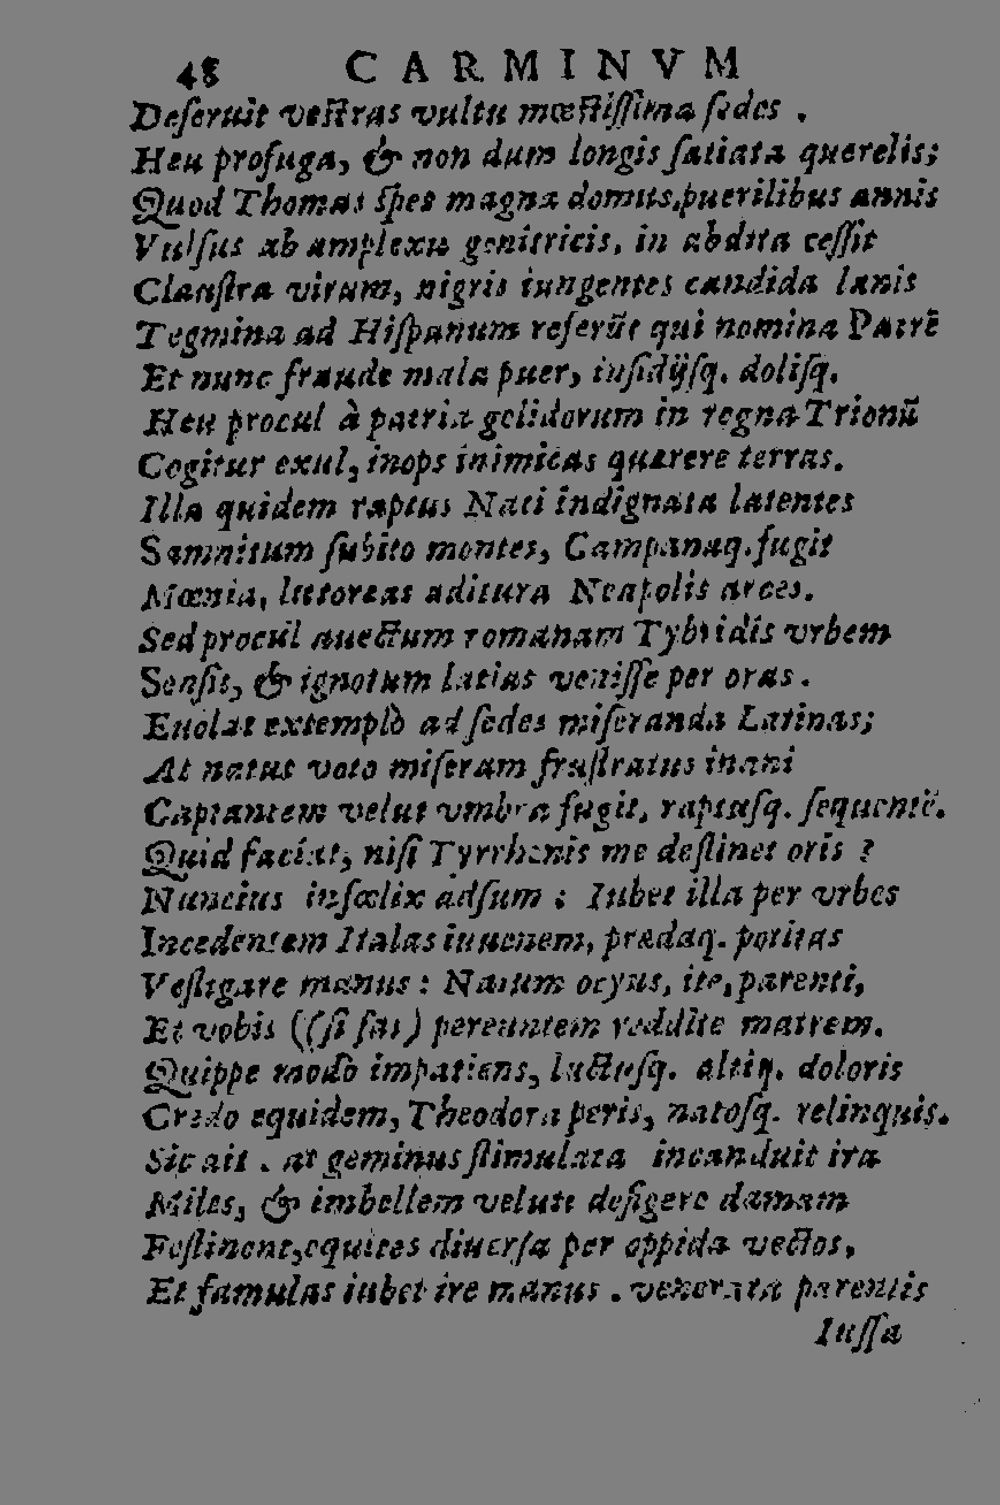 48 CARMINVM
Deſeruit veſtras vultu mœſtiſſima ſedes .
Heu profuga, & non dum longis ſatiata querelis;
Quod Thomas ſpes magna domus, puerilibus annis
Vulſus ab amplexu genitricis, in abdita ceſſit
Clauſtra virum, nigris iungentes candida lanis
Tegmina ad Hiſpanum referũt qui nomina Patrẽ
Et nunc fraude mala puer, inſidijſq. doliſq.
Heu procul à patria gelidorum in regna Trionũ
Cogitur exul, inops inimicas quærere terras.
Illa quidem raptus Nati indignata latentes
Samnitum ſubito montes, Campanaq. fugit
Mœnia, littoreas aditura Neapolis arces.
Sed procul auectum romanam Tybridis vrbem
Senſit, & ignotum latias veniſſe per oras .
Euolat extemplò ad ſedes miſeranda Latinas;
At natus voto miſeram fruſtratus inani
Captantem velut vmbra fugit, raptuſq. ſequentẽ.
Quid faciat, niſi Tyrrhenis me deſtinet oris ?
Nuncius inſœlix adſum : Iubet illa per vrbes
Incedentem Italas iuuenem, prædaq. potitas
Veſtigare manus : Natum ocyus, ite, parenti,
Et vobis ((ſi fas) pereuntem reddite matrem.
Quippe modò impatiens, luctuſq. altiq. doloris
Credo equidem, Theodora peris, natoſq. relinquis.
Sic ait . at geminus ſtimulata incanduit ira
Miles, & imbellem veluti defigere damam
Feſtinent, equites diuerſa per oppida vectos,
Et famulas iubet ire manus . venerata parentis
Iuſſa